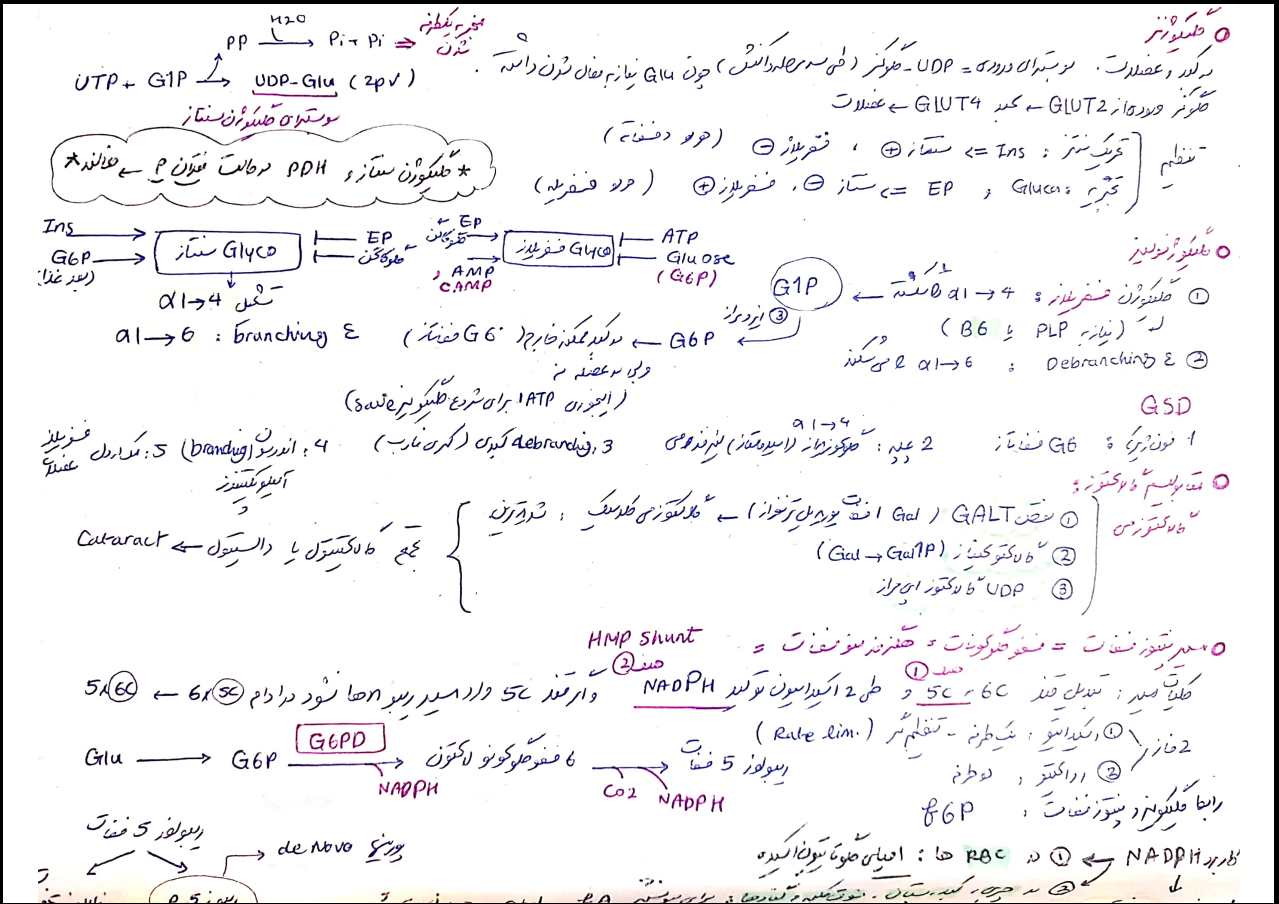 گلیکوژنز
در کبد و عضلات. سوبسترای ورودی = UDP - گلوکز (طی سه مرحله واکنش) چون Glu نیاز به فعال شدن داشته.
گلوکز ورودی از GLUT2 ← کبد GLUT4 ← عضلات
H2O
PP → Pi + Pi ⇒ منجر به یکطرفه شدن
UTP + G1P → UDP-Glu (2پی)
سوبسترای گلیکوژن سنتاز
* گلیکوژن سنتاز و PDH در حالت فقدان P ← فعالند *
تنظیم
تحریک سنتز : Ins => سنتاز ⊕ ، فسفریلاز ⊖ (هردو دفسفاته)
تجزیه : Gluca و EP => سنتاز ⊖، فسفریلاز ⊕ (هردو فسفریله)
Ins
G6P
(بعد غذا)
Glyco سنتاز
EP
گلوکاگن
تشکیل α1→4
α1→6 : branching ع
EP
گلوکاگن
AMP
, CAMP
Glyco فسفریلاز
ATP
Gluose
(G6P)
گلیکوژنولیز
① گلیکوژن فسفریلاز : α1→4 شکسته ← G1P
(نیاز به PLP یا B6)
③ ایزومراز
G6P ← در کبد ممکنه خارج (G6 فسفتاز)
ولی در عضله نه
(اینجوری 1ATP برای شروع گلیکولیز save)
② Debranching ع : α1→6 را می شکند
GSD
1 فون ژیرکه : G6 فسفاتاز
2 پمپه : گلوکوزیداز α1→4 (اسید مالتاز) لیزوزومی
3: debranching کبدی (کوری فوربس)
4: اندرسون (branching) آمیلوپکتینوز
5: مک آردل فسفریلاز عضلات
متابولیسم گالاکتوز :
گالاکتوزمی
① نقص GALT (Gal 1 فسفات یوریدیل ترنسفراز) ← گالاکتوزمی کلاسیک : شدیدترین
② گالاکتوکیناز (Gal → Gal1P)
③ UDP گالاکتوز اپی مراز
تجمع گالاکتیتول یا دالسیتول ← Cataract
مسیر پنتوز فسفات = فسفوگلوکونات = هگزوز مونوفسفات = HMP Shunt
هدف ①
هدف ②
کلیات مسیر : تبدیل قند 6C، 5C و طی 2 اکسیداسیون تولید NADPH و اگر قند 5C وارد مسیر ریبونوها نشود در ادامه 6x 5C ← 5x 6C
2 فاز
① اکسیداتیو : یک طرفه - تنظیم گر (Rate lim.)
② نان اکسیداتیو : دو طرفه
Glu → G6P
G6PD
NADPH
6 فسفوگلوکونو لاکتون
CO2
NADPH
ریبولوز 5 فسفات
رابط گلیکولیز و پنتوز فسفات : F6P
کاربرد NADPH ← ① در RBC ها : احیای گلوتاتیون اکسیده
ریبولوز 5 فسفات
پورینها de Novo